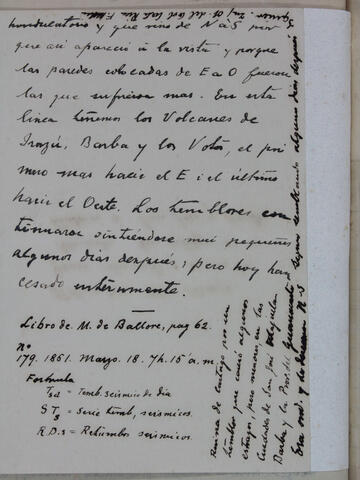 hundulatorio y que vino de N á S por
que asi apareció á la vista y porque
las paredes colocadas de E a O fueron
las que sufrieron mas. En esta
linea tenemos los Volcanes de
Irazú, Barba y los Votos, el pri
mero mas hacia el E i el último
hacia el Oeste. Los temblores con
tinuaron sintiéndose mui pequeños
algunos dias después; pero hoy han
cesado enteramente.
Libro de M. de Ballore, pag 62.
Nº
179. 1851. Mayo. 18. 7h. 15 a.m
Formula
Tsd = Temb. seismico de dia
STs = Serie temb, seismicos.
R.D.s = Retumbos seismicos.
Ruina de Cartago por un
temblor que causó algunos
estragos, pero menores, en las
ciudades de San José Alajuela
Barba y la Prov. del Guanacaste
siguió temblando algunos dias después
Era ond. y de N S